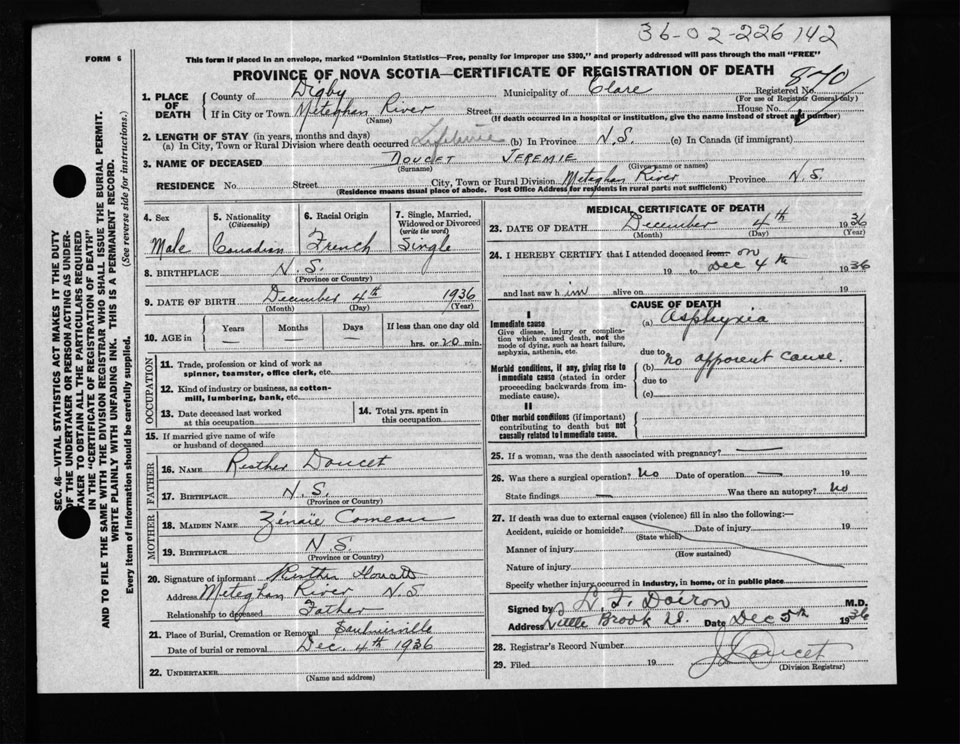 36-02-226 142
FORM 6
This form if placed in an envelope, marked "Dominion Statistics—Free, penalty for improper use $300," and properly addressed will pass through the mail "FREE"
PROVINCE OF NOVA SCOTIA—CERTIFICATE OF REGISTRATION OF DEATH
870
1. PLACE OF DEATH
County of Digby Municipality of Clare Registered No.
(For use of Registrar General only)
If in City or Town Meteghan River Street House No.
(Name) (If death occurred in a hospital or institution, give the name instead of street and number)
2. LENGTH OF STAY (in years, months and days)
(a) In City, Town or Rural Division where death occurred Lifetime (b) In Province N.S. (c) In Canada (if immigrant)
3. NAME OF DECEASED DOUCET JEREMIE
(Surname) (Given name or names)
RESIDENCE No. Street City, Town or Rural Division Meteghan River Province N.S.
(Residence means usual place of abode. Post Office Address for residents in rural parts not sufficient)
SEC. 46—VITAL STATISTICS ACT MAKES IT THE DUTY
OF THE UNDERTAKER OR PERSON ACTING AS UNDER-
TAKER TO OBTAIN ALL THE PARTICULARS REQUIRED
IN THE "CERTIFICATE OF REGISTRATION OF DEATH"
AND TO FILE THE SAME WITH THE DIVISION REGISTRAR WHO SHALL ISSUE THE BURIAL PERMIT.
WRITE PLAINLY WITH UNFADING INK. THIS IS A PERMANENT RECORD.
Every item of Information should be carefully supplied. (See reverse side for instructions.)
4. Sex
Male
5. Nationality
(Citizenship)
Canadian
6. Racial Origin
French
7. Single, Married, Widowed or Divorced
(write the word)
Single
8. BIRTHPLACE N.S.
(Province or Country)
9. DATE OF BIRTH December 4th 1936
(Month) (Day) (Year)
10. AGE in Years — Months — Days — If less than one day old
hrs. or 20 min.
OCCUPATION
11. Trade, profession or kind of work as
spinner, teamster, office clerk, etc.
12. Kind of industry or business, as cotton-
mill, lumbering, bank, etc.
13. Date deceased last worked
at this occupation
14. Total yrs. spent in
this occupation
15. If married give name of wife
or husband of deceased
FATHER
16. NAME Doucet
17. BIRTHPLACE N.S.
(Province or Country)
MOTHER
18. MAIDEN NAME Zénaïe Comeau
19. BIRTHPLACE N.S.
(Province or Country)
20. Signature of informant
Address Meteghan River N.S.
Relationship to deceased Father
21. Place of Burial, Cremation or Removal Saulnierville
Date of burial or removal Dec. 4th 1936
22. UNDERTAKER
(Name and address)
MEDICAL CERTIFICATE OF DEATH
23. DATE OF DEATH December 4th 1936
(Month) (Day) (Year)
24. I HEREBY CERTIFY that I attended deceased from: on
19 to Dec 4th 1936
and last saw him alive on 19
CAUSE OF DEATH
I
Immediate cause
Give disease, injury or complica-
tion which caused death, not the
mode of dying, such as heart failure,
asphyxia, asthenia, etc.
(a) Asphyxia
due to
Morbid conditions, if any, giving rise to
immediate cause (stated in order
proceeding backwards from im-
mediate cause).
(b) no apparent cause.
due to
(c)
II
Other morbid conditions (if important)
contributing to death but not
causally related to immediate cause.
25. If a woman, was the death associated with pregnancy? —
26. Was there a surgical operation? No Date of operation — 19
State findings — Was there an autopsy? No
27. If death was due to external causes (violence) fill in also the following:—
Accident, suicide or homicide? Date of injury 19
(State which)
Manner of injury
(How sustained)
Nature of injury
Specify whether injury occurred in industry, in home, or in public place
Signed by L. F. Doiron M.D.
Address Little Brook Date Dec 5th 1936
28. Registrar's Record Number
29. Filed 19 Doucet
(Division Registrar)